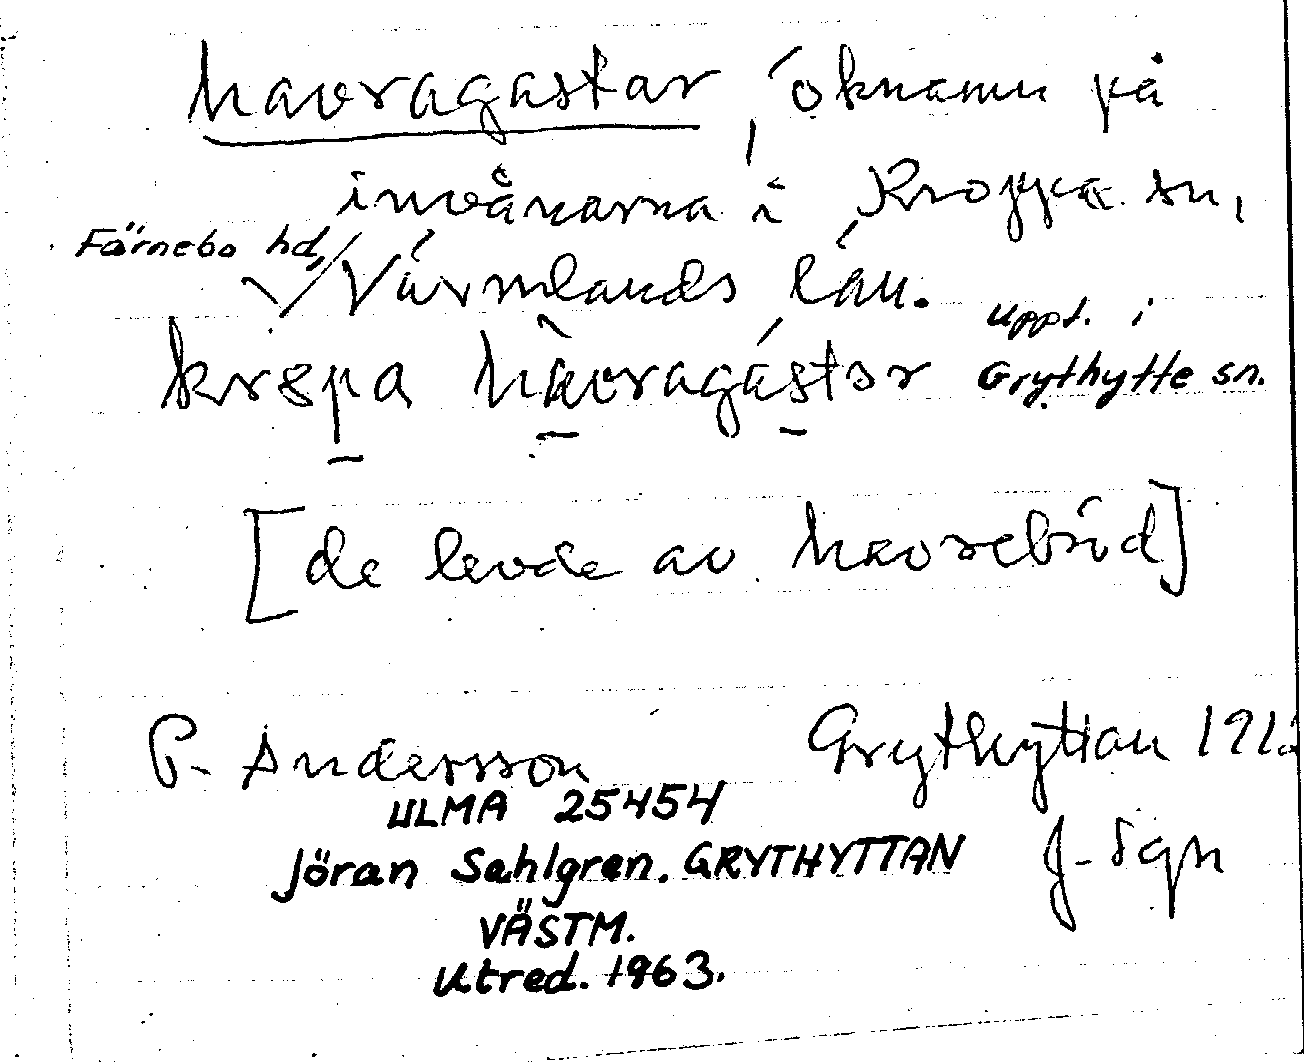 havragastar, öknamn på
invånarna i Kroppa sn,
Färnebo hd,
Värmlands län.
Uppt. i
krɛpa hàvragástɔr Grythytte sn.
[de levde av havrebröd]
P. Andersson Grythyttan 191
ULMA 25454
Jöran Sahlgren. GRYTHYTTAN J-Sgn
VÄSTM.
Utred. 1963.